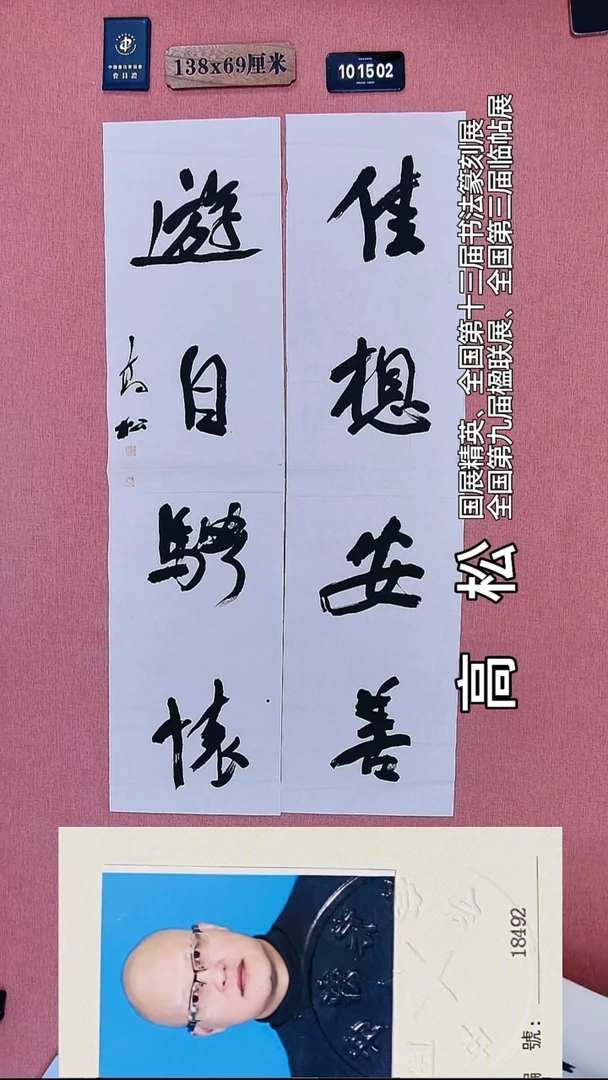 中国書法家協會
會員證
138x69厘米
10 15 02
佳想安善
遊目騁懷
高松
国展精英、全国第十三届书法篆刻展
全国第九届楹联展、全国第三届临帖展
高 松
號: 18492